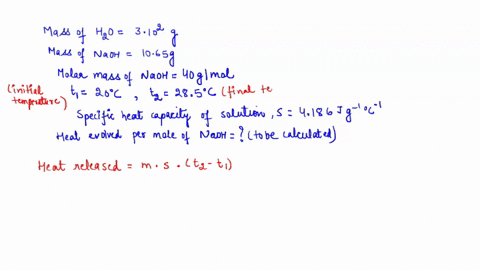 Mass of H₂O = 3.10² g
Mass of NaOH = 10.65g
Molar mass of NaOH = 40 g/mol
(initial temperature) t₁ = 20°C , t₂ = 28.5°C (final te
Specific heat capacity of solution, S = 4.186 J g⁻¹ °C⁻¹
Heat evolved per mole of NaOH = ? (to be calculated)
Heat released = m . s . (t₂ - t₁)